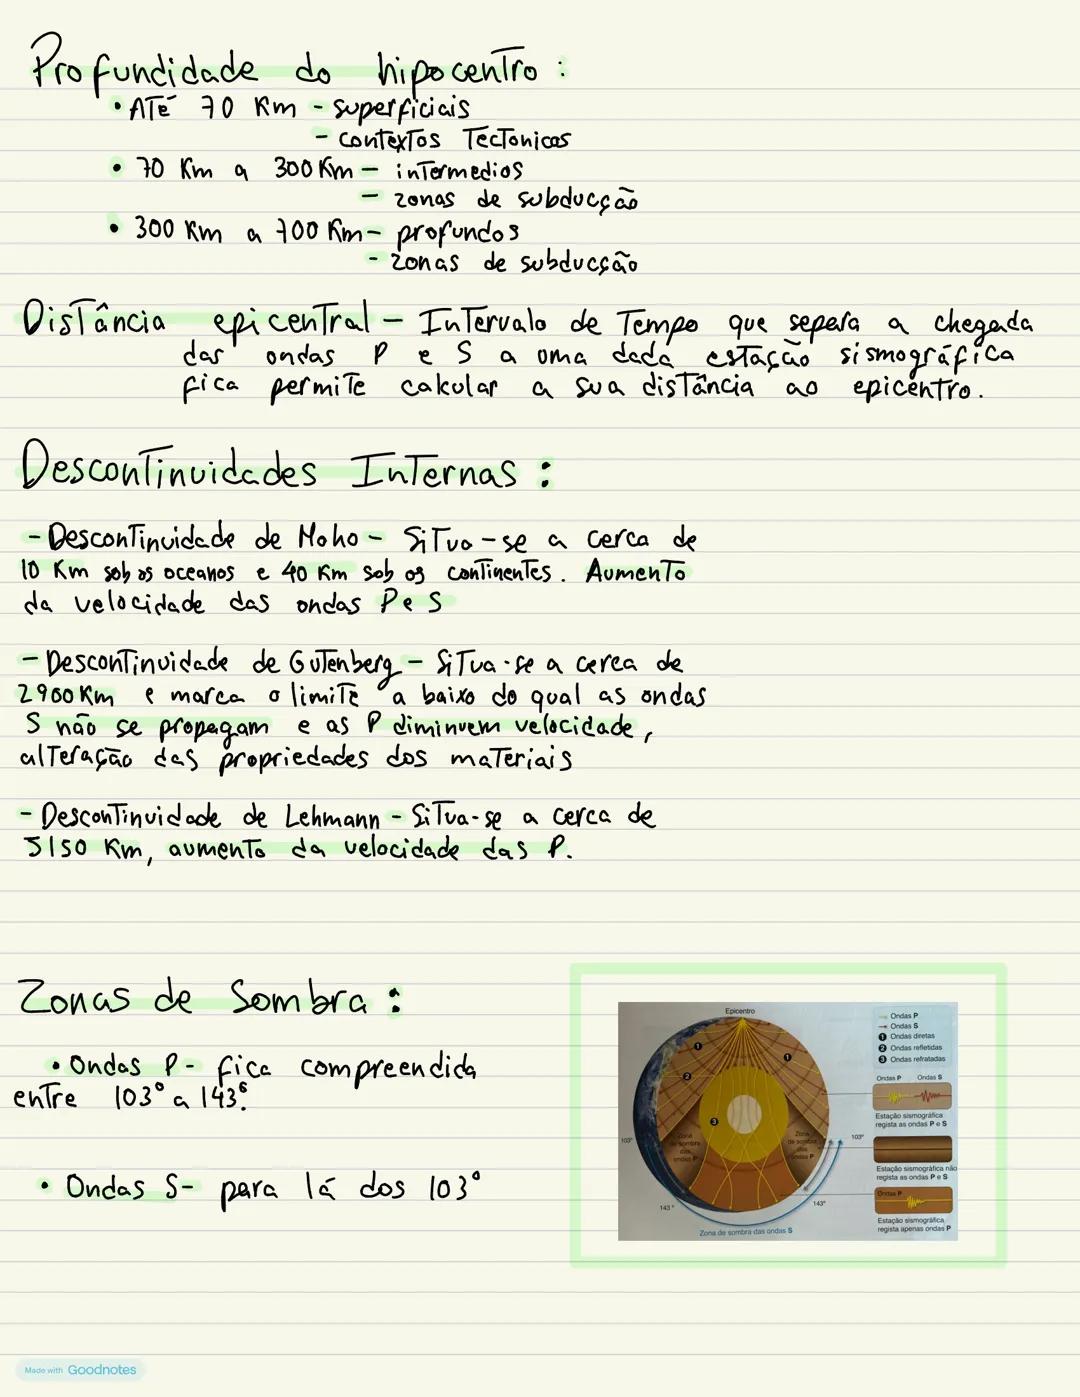 Profundidade do hipocentro :
• ATÉ 70 Km - superficiais
- contextos Tectonicos
• 70 Km a 300 Km - intermedios
- zonas de subducção
• 300 Km a 700 Km - profundos
- zonas de subducção
Distância epicentral - Intervalo de Tempo que sepera a chegada
das ondas P e S a uma dada estação sismográfica
fica permite calcular a sua distância ao epicentro.
Descontinuidades Internas :
- Descontinuidade de Moho - Situa-se a cerca de
10 Km sob os oceanos e 40 Km sob os continentes. Aumento
da velocidade das ondas P e S
- Descontinuidade de Gutenberg - Situa-se a cerca de
2900 Km e marca o limite a baixo do qual as ondas
S não se propagam e as P diminuem velocidade,
alteração das propriedades dos materiais
- Descontinuidade de Lehmann - Situa-se a cerca de
5150 Km, aumento da velocidade das P.
Zonas de Sombra :
• Ondas P - fica compreendida
entre 103° a 143°.
• Ondas S - para lá dos 103°
Epicentro
Ondas P
Ondas S
1 Ondas diretas
2 Ondas refletidas
3 Ondas refratadas
Ondas P Ondas S
Estação sismográfica
regista as ondas P e S
Estação sismográfica não
regista as ondas P e S
Ondas P
Estação sismográfica
regista apenas ondas P
1
1
2
3
Zona
de sombra
das
ondas P
Zona
de sombra
das
ondas P
103°
103°
143°
143°
Zona de sombra das ondas S
Made with Goodnotes